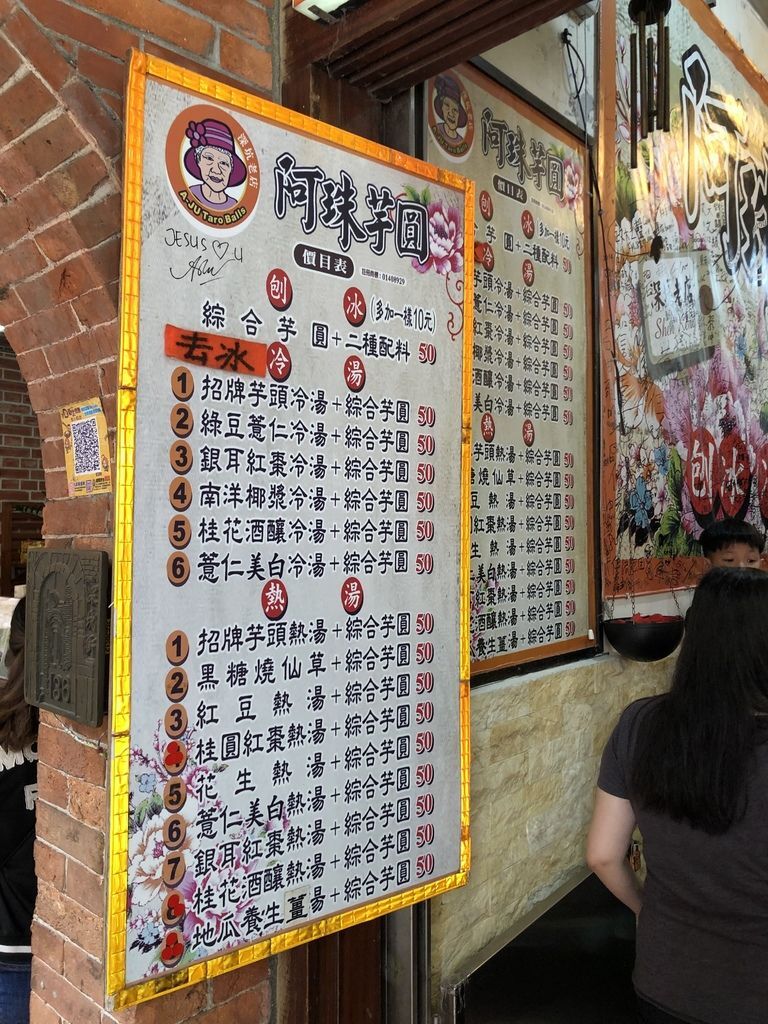 深坑老店
A-JU Taro Balls
阿珠芋圓
JESUS ♡ U
價目表
註冊商標：01408929
刨 冰 (多加一樣10元)
綜合芋圓+二種配料 50
去冰
冷 湯
1 招牌芋頭冷湯+綜合芋圓 50
2 綠豆薏仁冷湯+綜合芋圓 50
3 銀耳紅棗冷湯+綜合芋圓 50
4 南洋椰漿冷湯+綜合芋圓 50
5 桂花酒釀冷湯+綜合芋圓 50
6 薏仁美白冷湯+綜合芋圓 50
熱 湯
1 招牌芋頭熱湯+綜合芋圓 50
2 黑糖燒仙草+綜合芋圓 50
3 紅豆熱湯+綜合芋圓 50
桂圓紅棗熱湯+綜合芋圓 50
5 花生熱湯+綜合芋圓 50
6 薏仁美白熱湯+綜合芋圓 50
7 銀耳紅棗熱湯+綜合芋圓 50
桂花酒釀熱湯+綜合芋圓 50
地瓜養生薑湯+綜合芋圓 50
186
阿珠芋圓
價目表
刨 冰 多加一樣10元
芋圓+二種配料 50
冷 湯
芋頭冷湯+綜合芋圓 50
薏仁冷湯+綜合芋圓 50
紅棗冷湯+綜合芋圓 50
椰漿冷湯+綜合芋圓 50
酒釀冷湯+綜合芋圓 50
美白冷湯+綜合芋圓 50
熱 湯
芋頭熱湯+綜合芋圓 50
糖燒仙草+綜合芋圓 50
豆熱湯+綜合芋圓 50
紅棗熱湯+綜合芋圓 50
生熱湯+綜合芋圓 50
美白熱湯+綜合芋圓 50
紅棗熱湯+綜合芋圓 50
酒釀熱湯+綜合芋圓 50
養生薑湯+綜合芋圓 50
刨冰